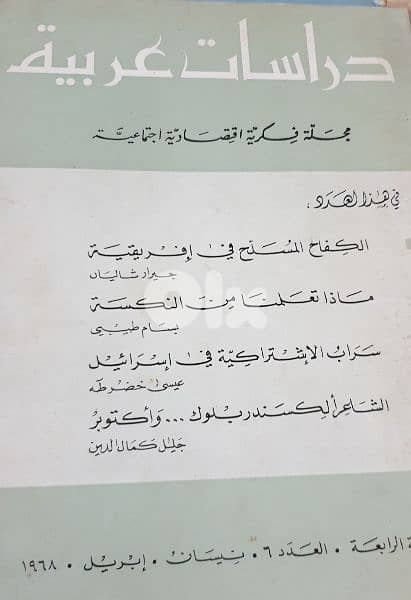 دراسات عربية
مجلة فكرية اقتصادية اجتماعية
في هذا العدد :
الكفاح المسلح في إفريقية
جيرار شاليان
ماذا تعلمنا من النكسة
بسام طيبي
سراب الإشتراكية في إسرائيل
عيسى خضر طه
الشاعر ألكسندر بلوك ... وأكتوبر
جليل كمال الدين
الرابعة • العدد ٦ • نيسان • إبريل • ١٩٦٨